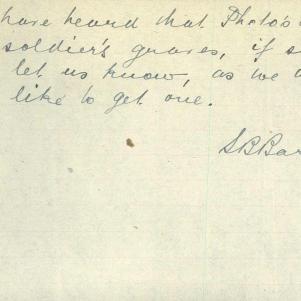 have heard that Photo's
soldier's graves, if s
let us know, as we
like to get one.
S B Bar